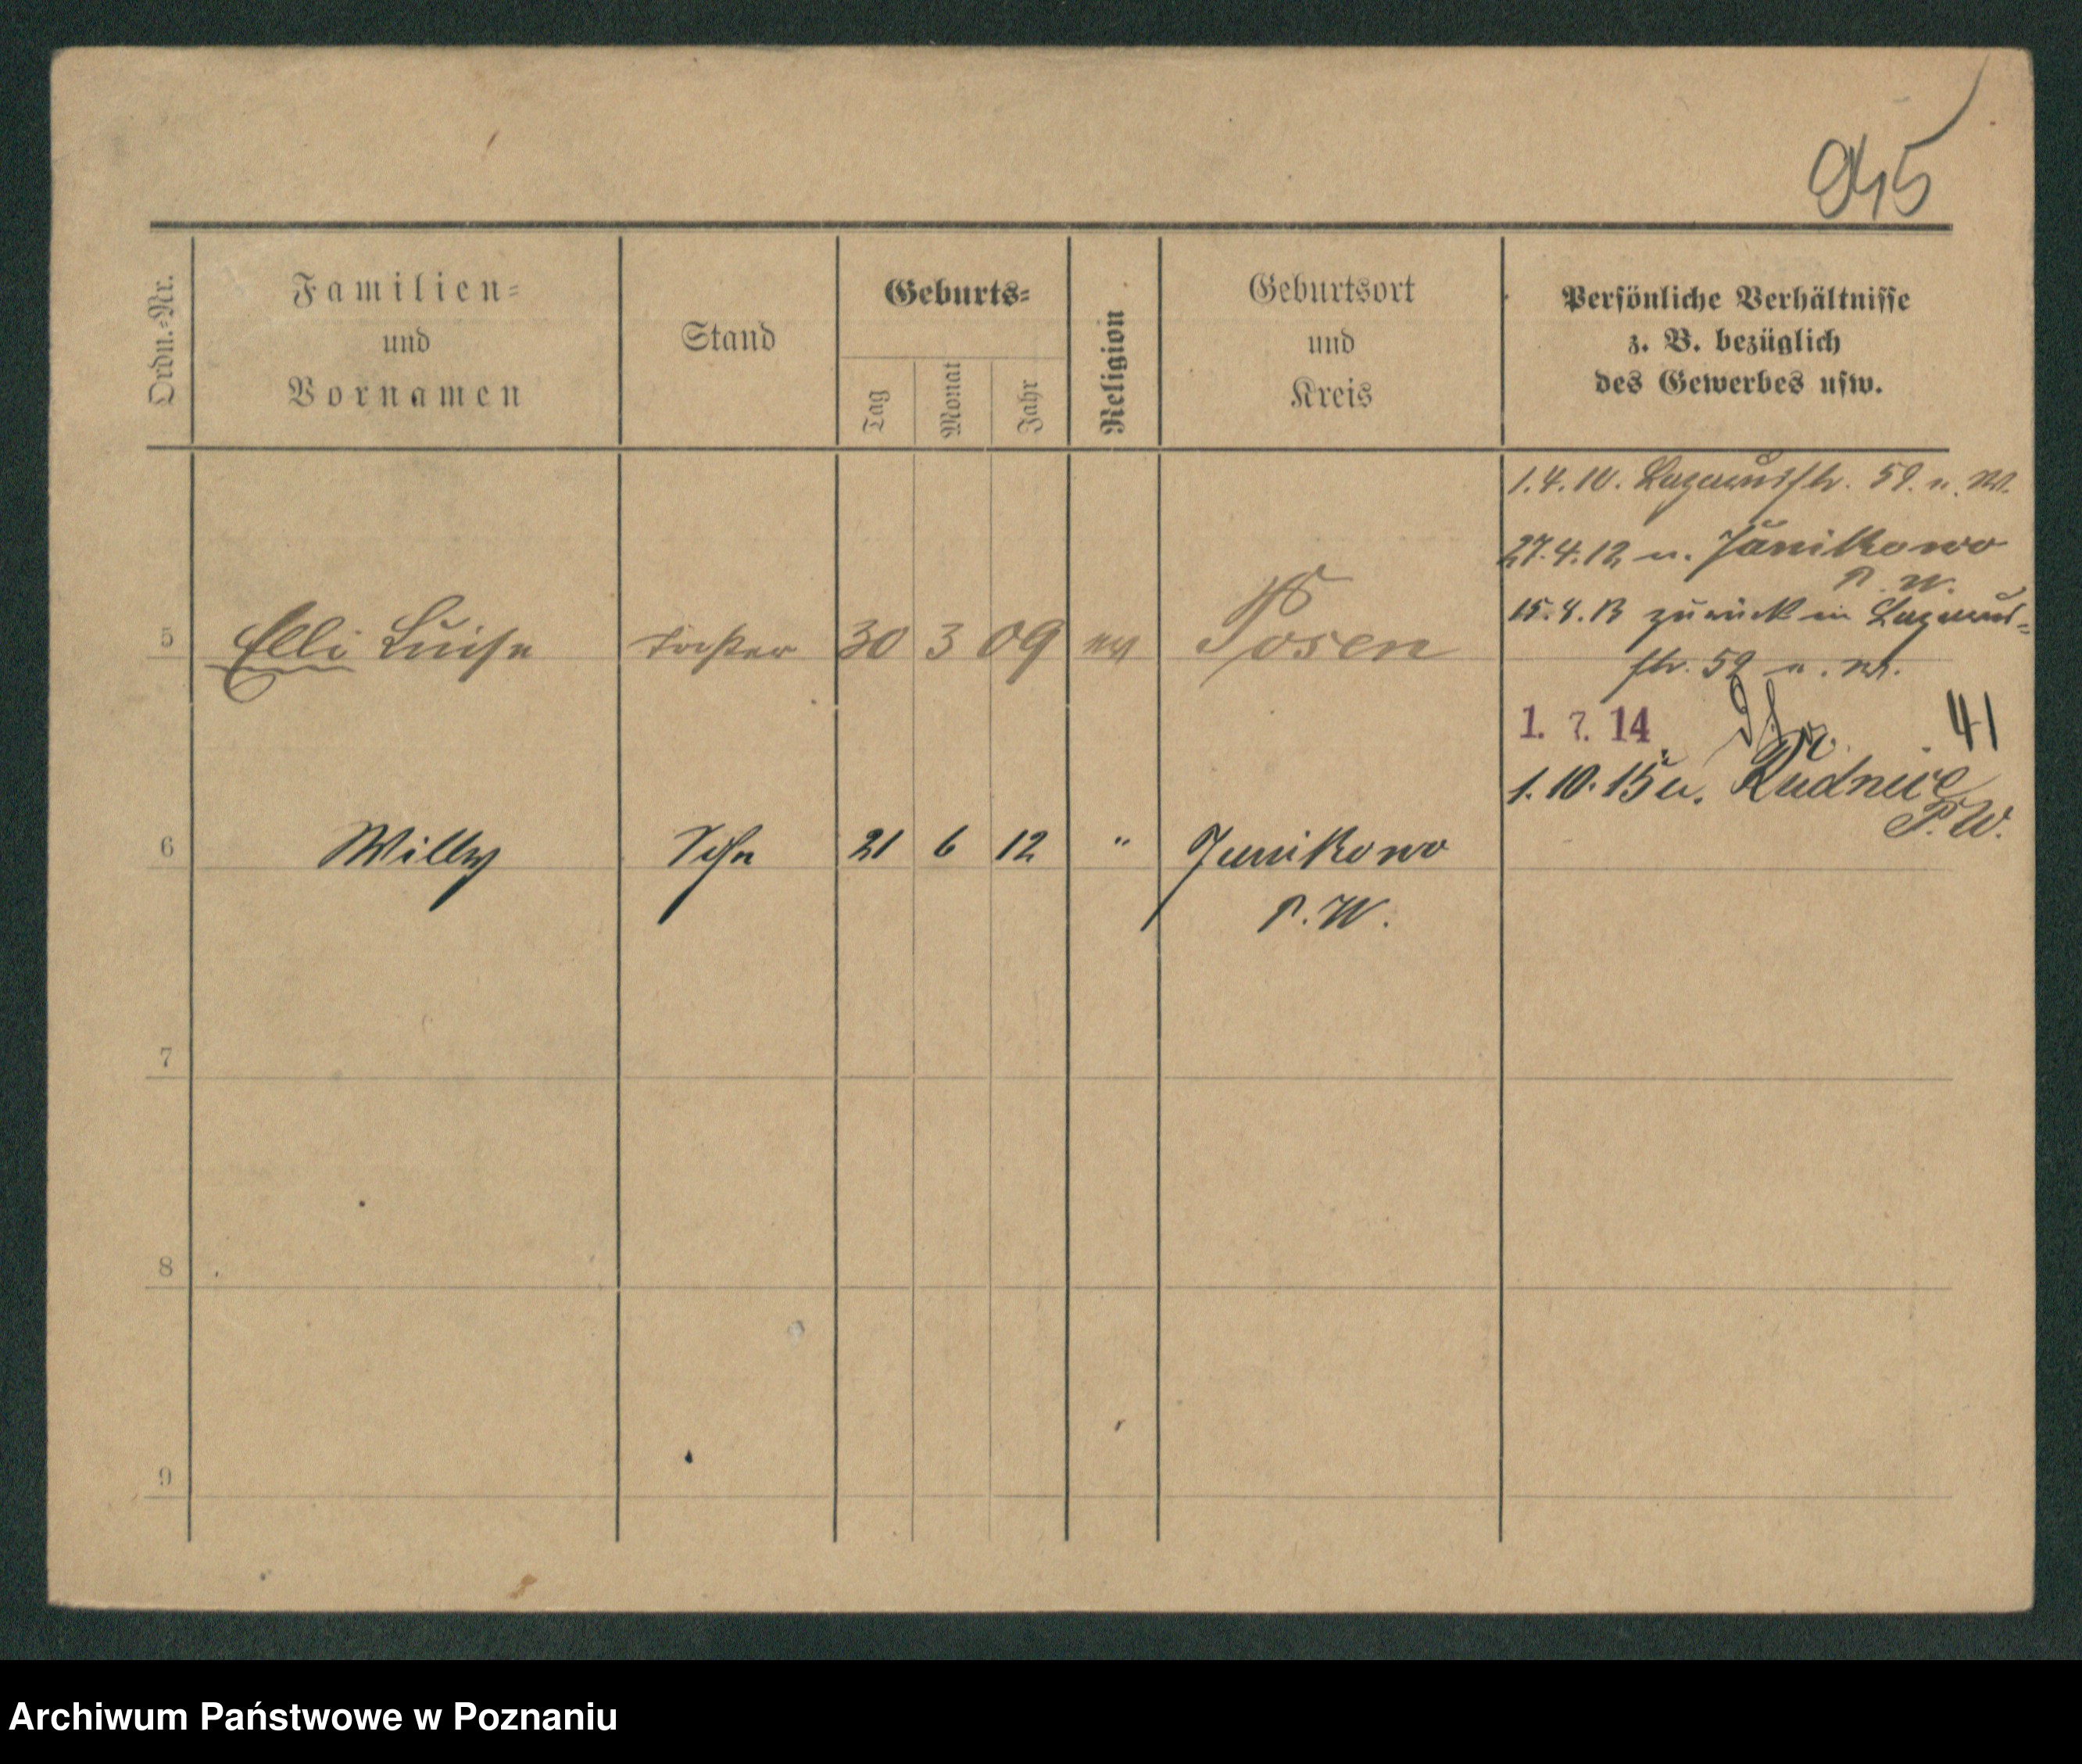 945
Ordn.-Nr.
Familien-
und
Vornamen
Stand
Geburts-
Tag
Monat
Jahr
Religion
Geburtsort
und
Kreis
Persönliche Verhältnisse
z. B. bezüglich
des Gewerbes usw.
1.4.10. Lazarusstr. 59. u. W.
27.4.12 u. Junikowo
P. W.
15.4.13 zurück in Lazarus-
str. 59 u. W.
1. 7. 14 41
1.10.15 u. Rudnice
P.W.
5 Elli Luise Tochter 30 3 09 ev Posen
6 Willy Sohn 21 6 12 " Junikowo
P. W.
7
8
9
Archiwum Państwowe w Poznaniu